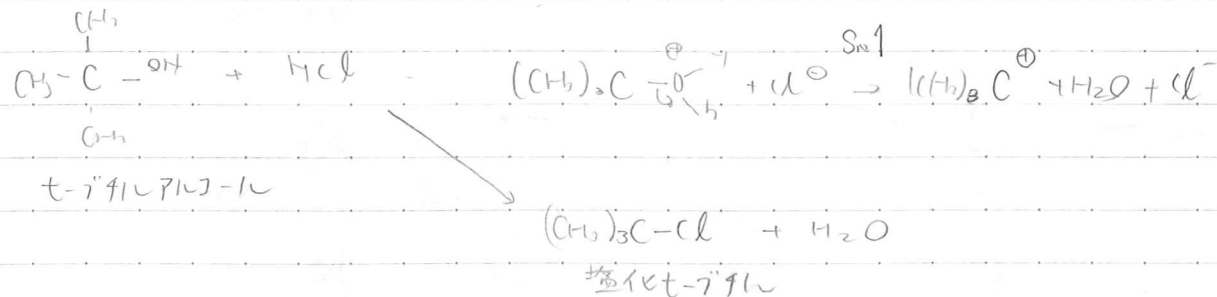 CH₃
CH₃-C-OH + HCl
CH₃
t-ブチルアルコール
SN1
(CH₃)₃C-O⊕-H H + Cl⊖ → (CH₃)₃C⊕ + H₂O + Cl⁻
(CH₃)₃C-Cl + H₂O
塩化t-ブチル